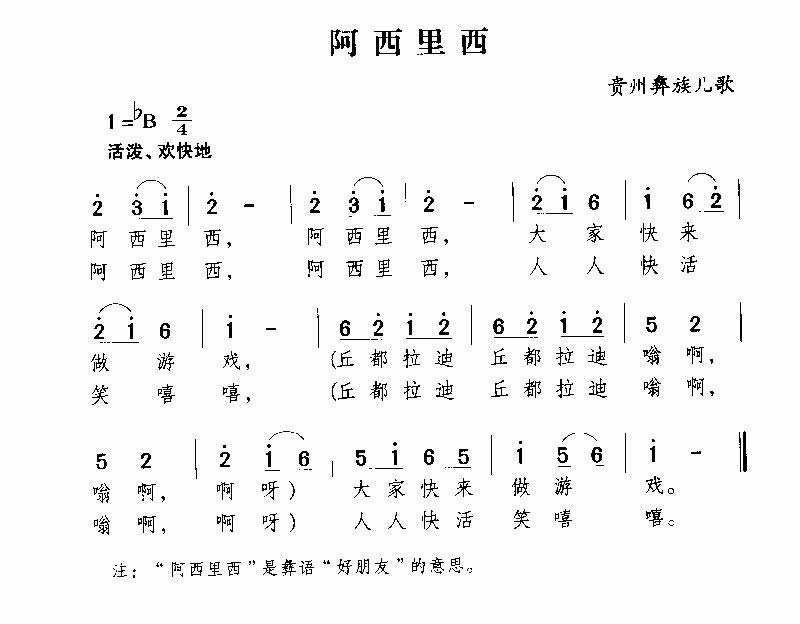 阿西里西
贵州彝族儿歌
1=♭B 2/4
活泼、欢快地
2 3 1 | 2 - | 2 3 1 | 2 - | 2 1 6 | 1 6 2 |
阿 西 里 西, 阿 西 里 西, 大 家 快 来
阿 西 里 西, 阿 西 里 西, 人 人 快 活
2 1 6 | 1 - | 6 2 1 2 | 6 2 1 2 | 5 2 |
做 游 戏, (丘 都 拉 迪 丘 都 拉 迪 嗡 啊,
笑 嘻 嘻, (丘 都 拉 迪 丘 都 拉 迪 嗡 啊,
5 2 | 2 1 6 | 5 1 6 5 | 1 5 6 | 1 - ‖
嗡 啊, 啊 呀) 大 家 快 来 做 游 戏。
嗡 啊, 啊 呀) 人 人 快 活 笑 嘻 嘻。
注:“阿西里西”是彝语“好朋友”的意思。